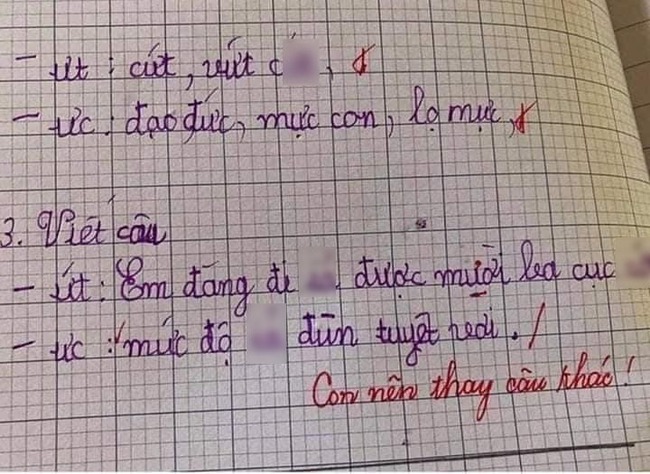 - ưt : cứt, vứt c
- ưc : đạo đức, mực con, lọ mực,
3. Viết câu
- ứt : Em đang đi được mười ba cục
- ưc : mức độ đùn tuyệt vời.
Con nên thay câu khác!